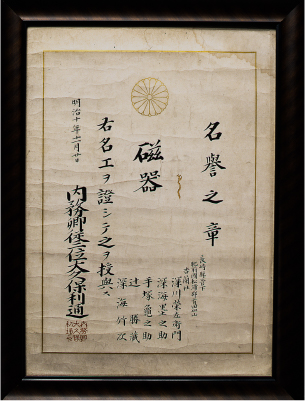 名譽之章
長崎縣管下
肥前國松浦郡有田
香蘭社
深川榮左衛門
深海墨之助
手塚亀之助
辻勝藏
深海竹次
磁器
右名工ヲ證シテ之ヲ授與ス
明治十年十一月廿日
内務卿従三位大久保利通